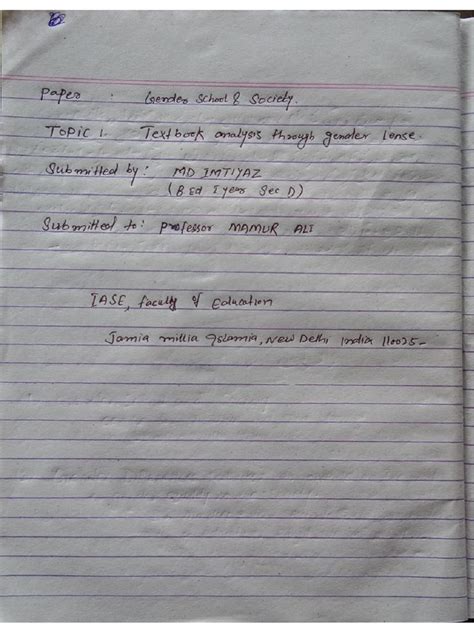 Paper : Gender School & Society.
TOPIC 1. Textbook analysis through gender lense.
Submitted by : MD IMTIYAZ
(B Ed I year Sec D)
Submitted to : professor MAMUR ALI
IASE, faculty of Education
Jamia millia Islamia, New Delhi India 110025